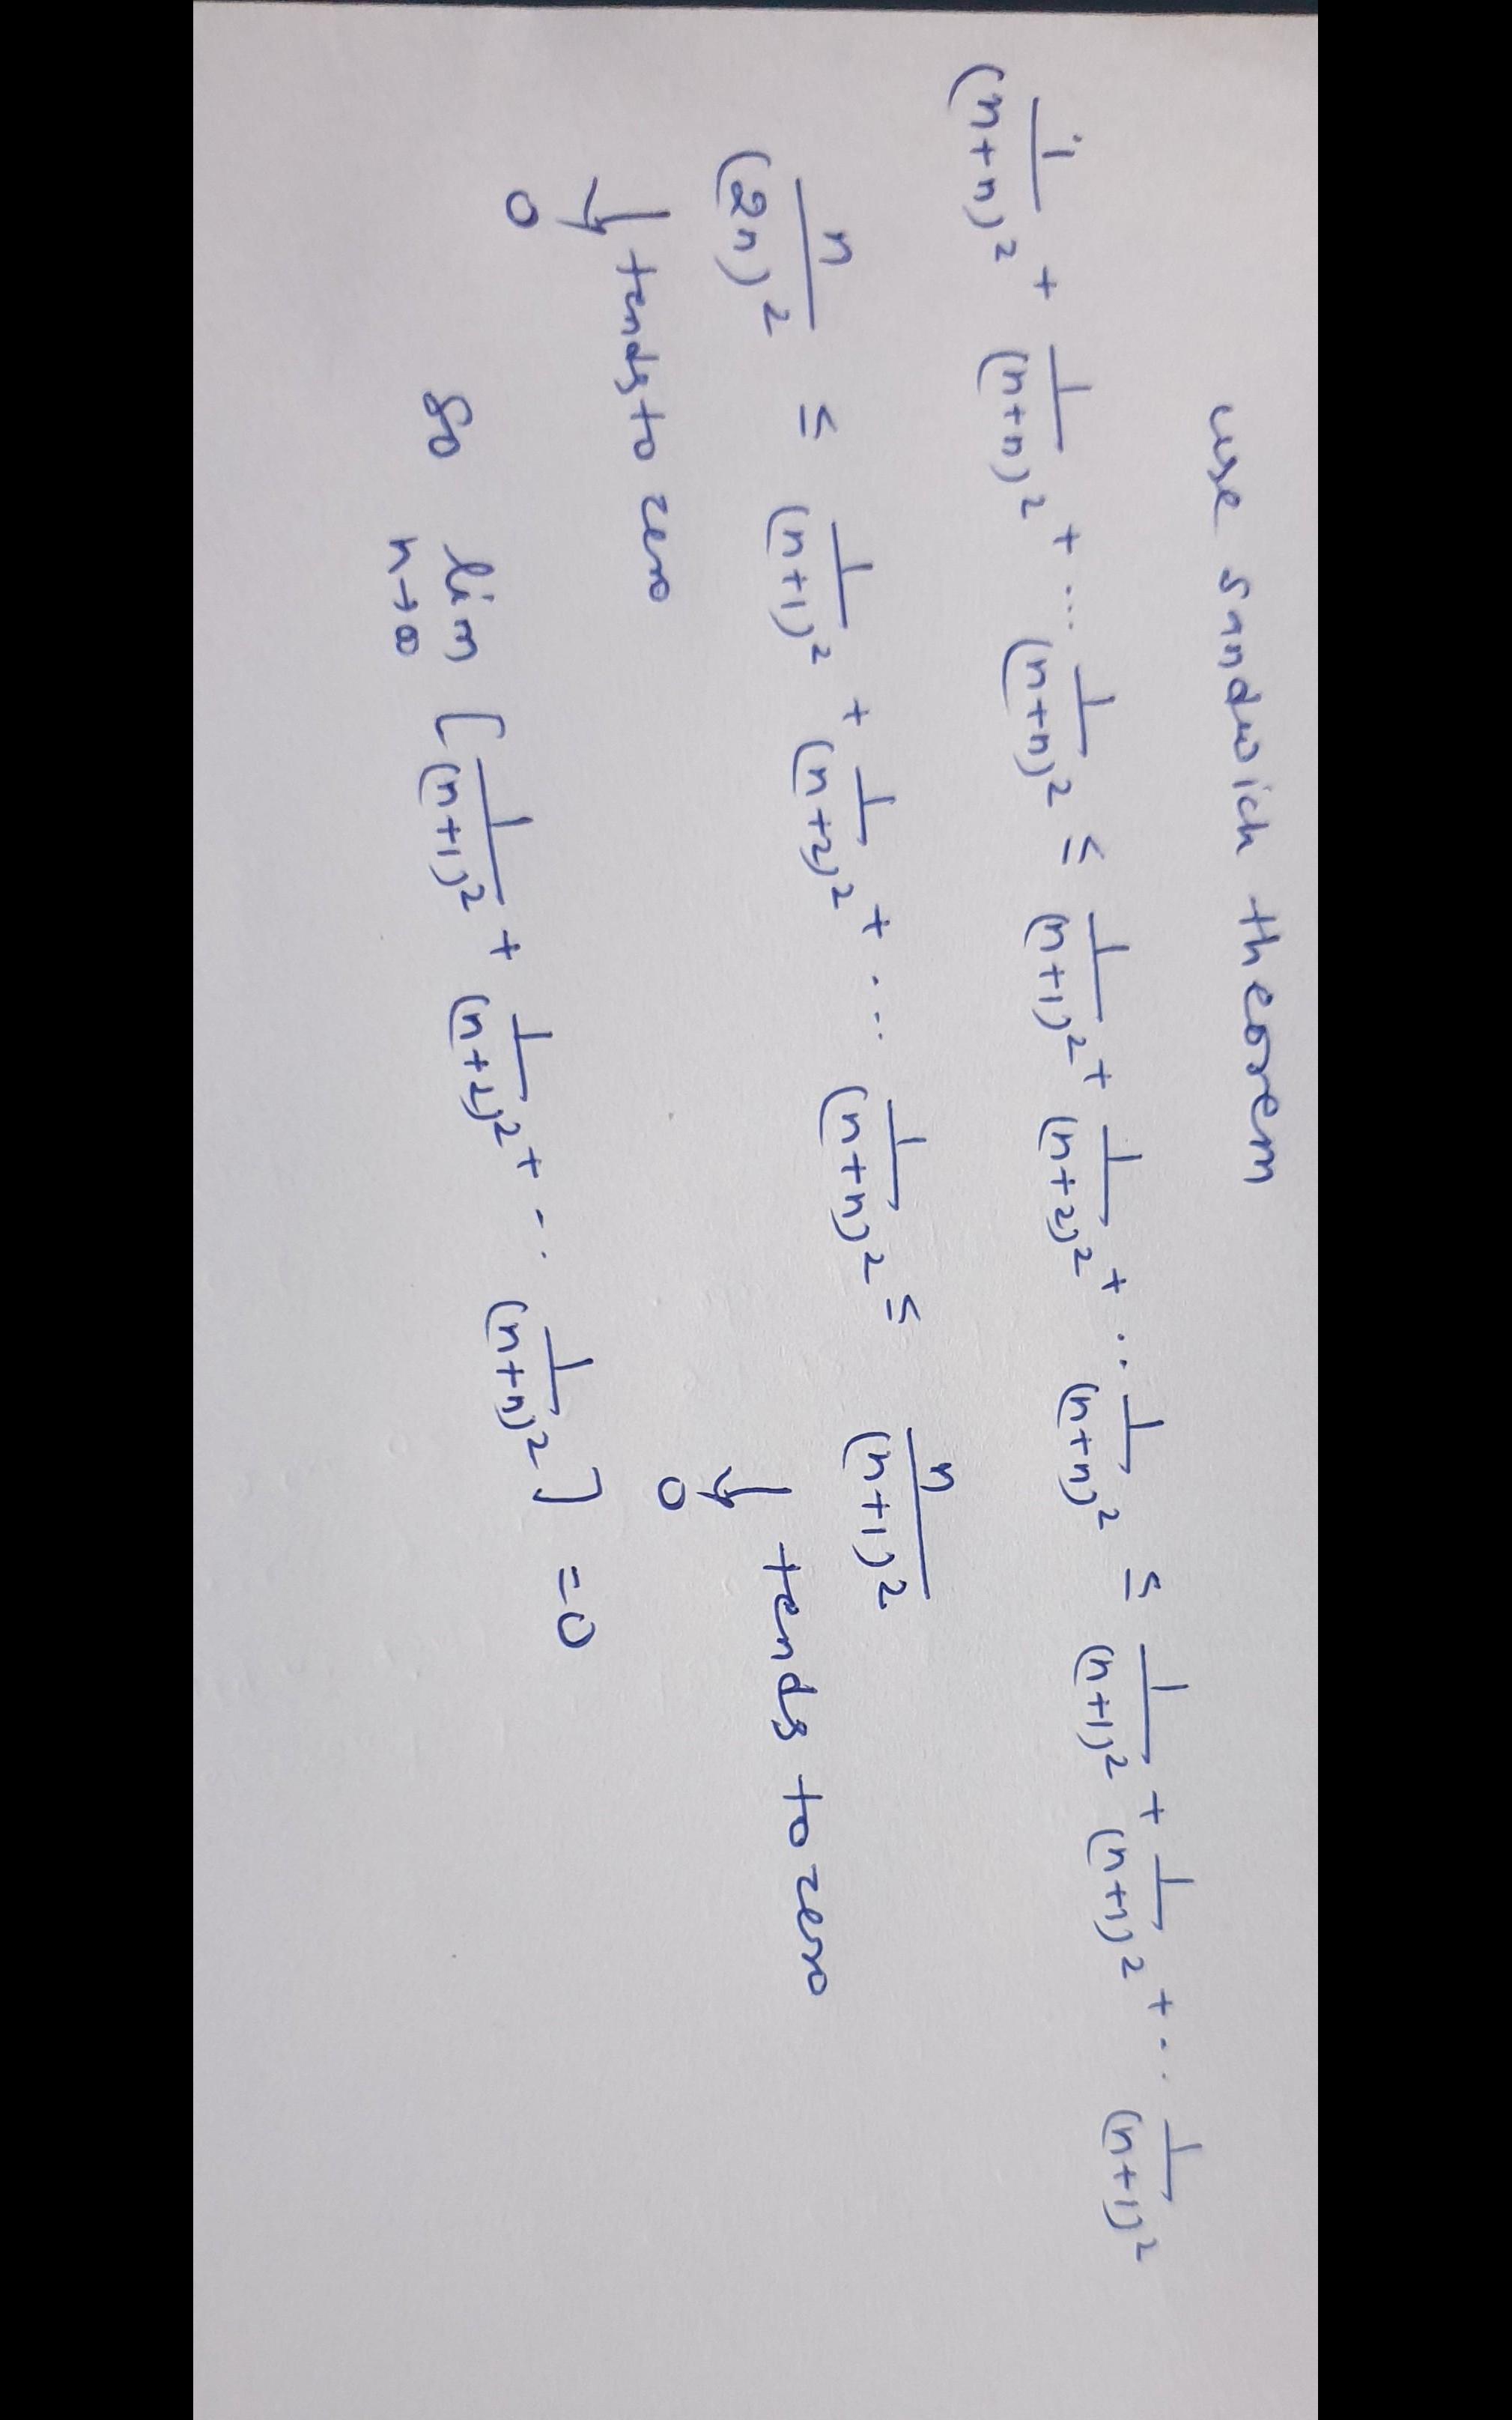 use sandwich theorem
1/(n+n)² + 1/(n+n)² + ... 1/(n+n)² ≤ 1/(n+1)² + 1/(n+2)² + ... 1/(n+n)² ≤ 1/(n+1)² + 1/(n+1)² + ... 1/(n+1)²
n/(2n)² ≤ 1/(n+1)² + 1/(n+2)² + ... 1/(n+n)² ≤ n/(n+1)²
↓ tends to zero ↓ tends to zero
0 0
so lim n→∞ [1/(n+1)² + 1/(n+2)² + ... 1/(n+n)²] = 0